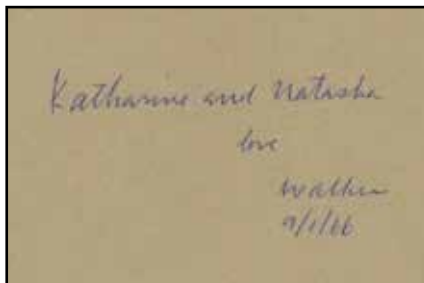 Katharine and Natasha
love
Walker
9/1/66